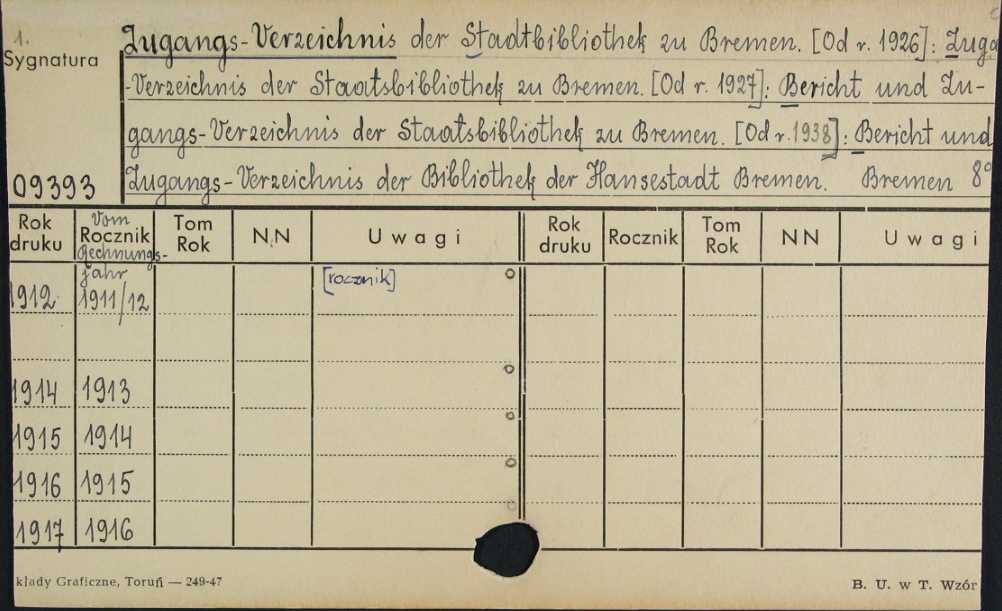 1.
Sygnatura
Zugangs-Verzeichnis der Stadtbibliothek zu Bremen. [Od r. 1926]: Zuga
-Verzeichnis der Staatsbibliothek zu Bremen. [Od r. 1927]: Bericht und Zu-
gangs-Verzeichnis der Staatsbibliothek zu Bremen. [Od r. 1938]: Bericht und
09393 Zugangs-Verzeichnis der Bibliothek der Hansestadt Bremen. Bremen 8°
Rok druku Vom Rocznik Rechnungs- Tom Rok N.N Uwagi Rok druku Rocznik Tom Rok NN Uwagi
jahr
1912 1911/12 [rocznik]
1914 1913
1915 1914
1916 1915
1917 1916
kłady Graficzne, Toruń — 249-47 B. U. w T. Wzór